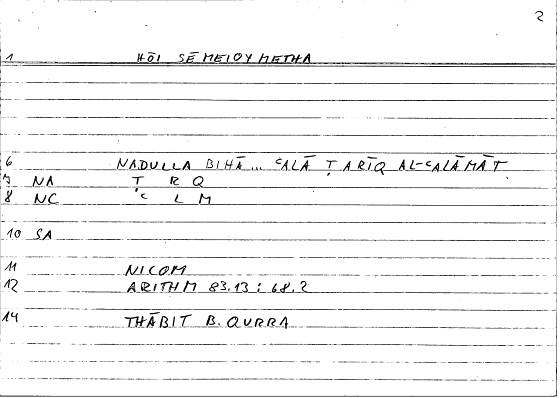 2
1 HŌI SĒMEIOYMETHA
6 NADULLA BIHĀ... ʿALĀ ṬARĪQ AL-ʿALĀMĀT
7 NA Ṭ R Q
8 NC ʿ L M
10 SA
11 NICOM
12 ARITHM 83.13 : 68.2
14 THĀBIT B. QURRA